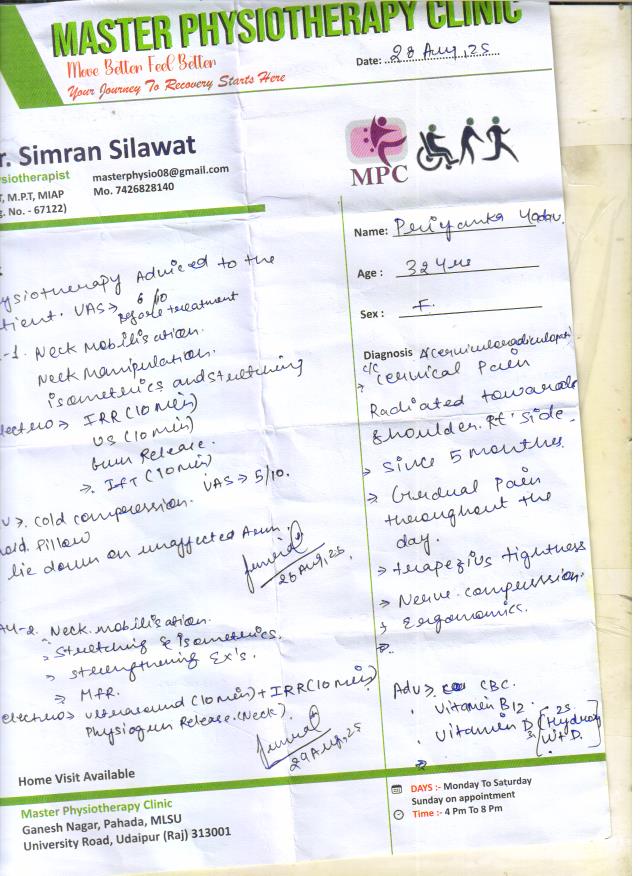 MASTER PHYSIOTHERAPY CLINIC
Move Better Feel Better
Your Journey To Recovery Starts Here
Date: 28 Aug, 25
r. Simran Silawat
ysiotherapist
T, M.P.T, MIAP
g. No. - 67122)
masterphysio08@gmail.com
Mo. 7426828140
MPC
Name: Periyanka Yadav.
Age : 32 Yrs
Sex : F.
ysiotherapy Adviced to the
tient. VAS > 6/10
Before treatment
-1. Neck mobilisation.
Neck Manipulation.
isometrics and stretching
lectro > IRR (10 min)
US (10 min)
Release.
> IFT (10 min)
VAS > 5/10.
> Cold compression.
Pillow
lie down on unaffected Arm.
28 Aug, 25.
-2. Neck mobilisation.
> Stretching & Isometrics.
> strengthening Ex's.
> MFR.
electro > ultrasound (10 min) + IRR (10 min)
Release. (Neck).
29 Aug, 25
Diagnosis
c/c
> Cervical Pain
Radiated towards
shoulder. Rt' side.
> Since 5 months.
> Gradual Pain
throughout the
day.
> trapezius tightness
> Nerve compression.
> Ergonomics.
Adv > CBC.
. Vitamin B12.
. Vitamin D3 (25 Hydroxy
Vit D.
Home Visit Available
Master Physiotherapy Clinic
Ganesh Nagar, Pahada, MLSU
University Road, Udaipur (Raj) 313001
DAYS :- Monday To Saturday
Sunday on appointment
Time :- 4 Pm To 8 Pm